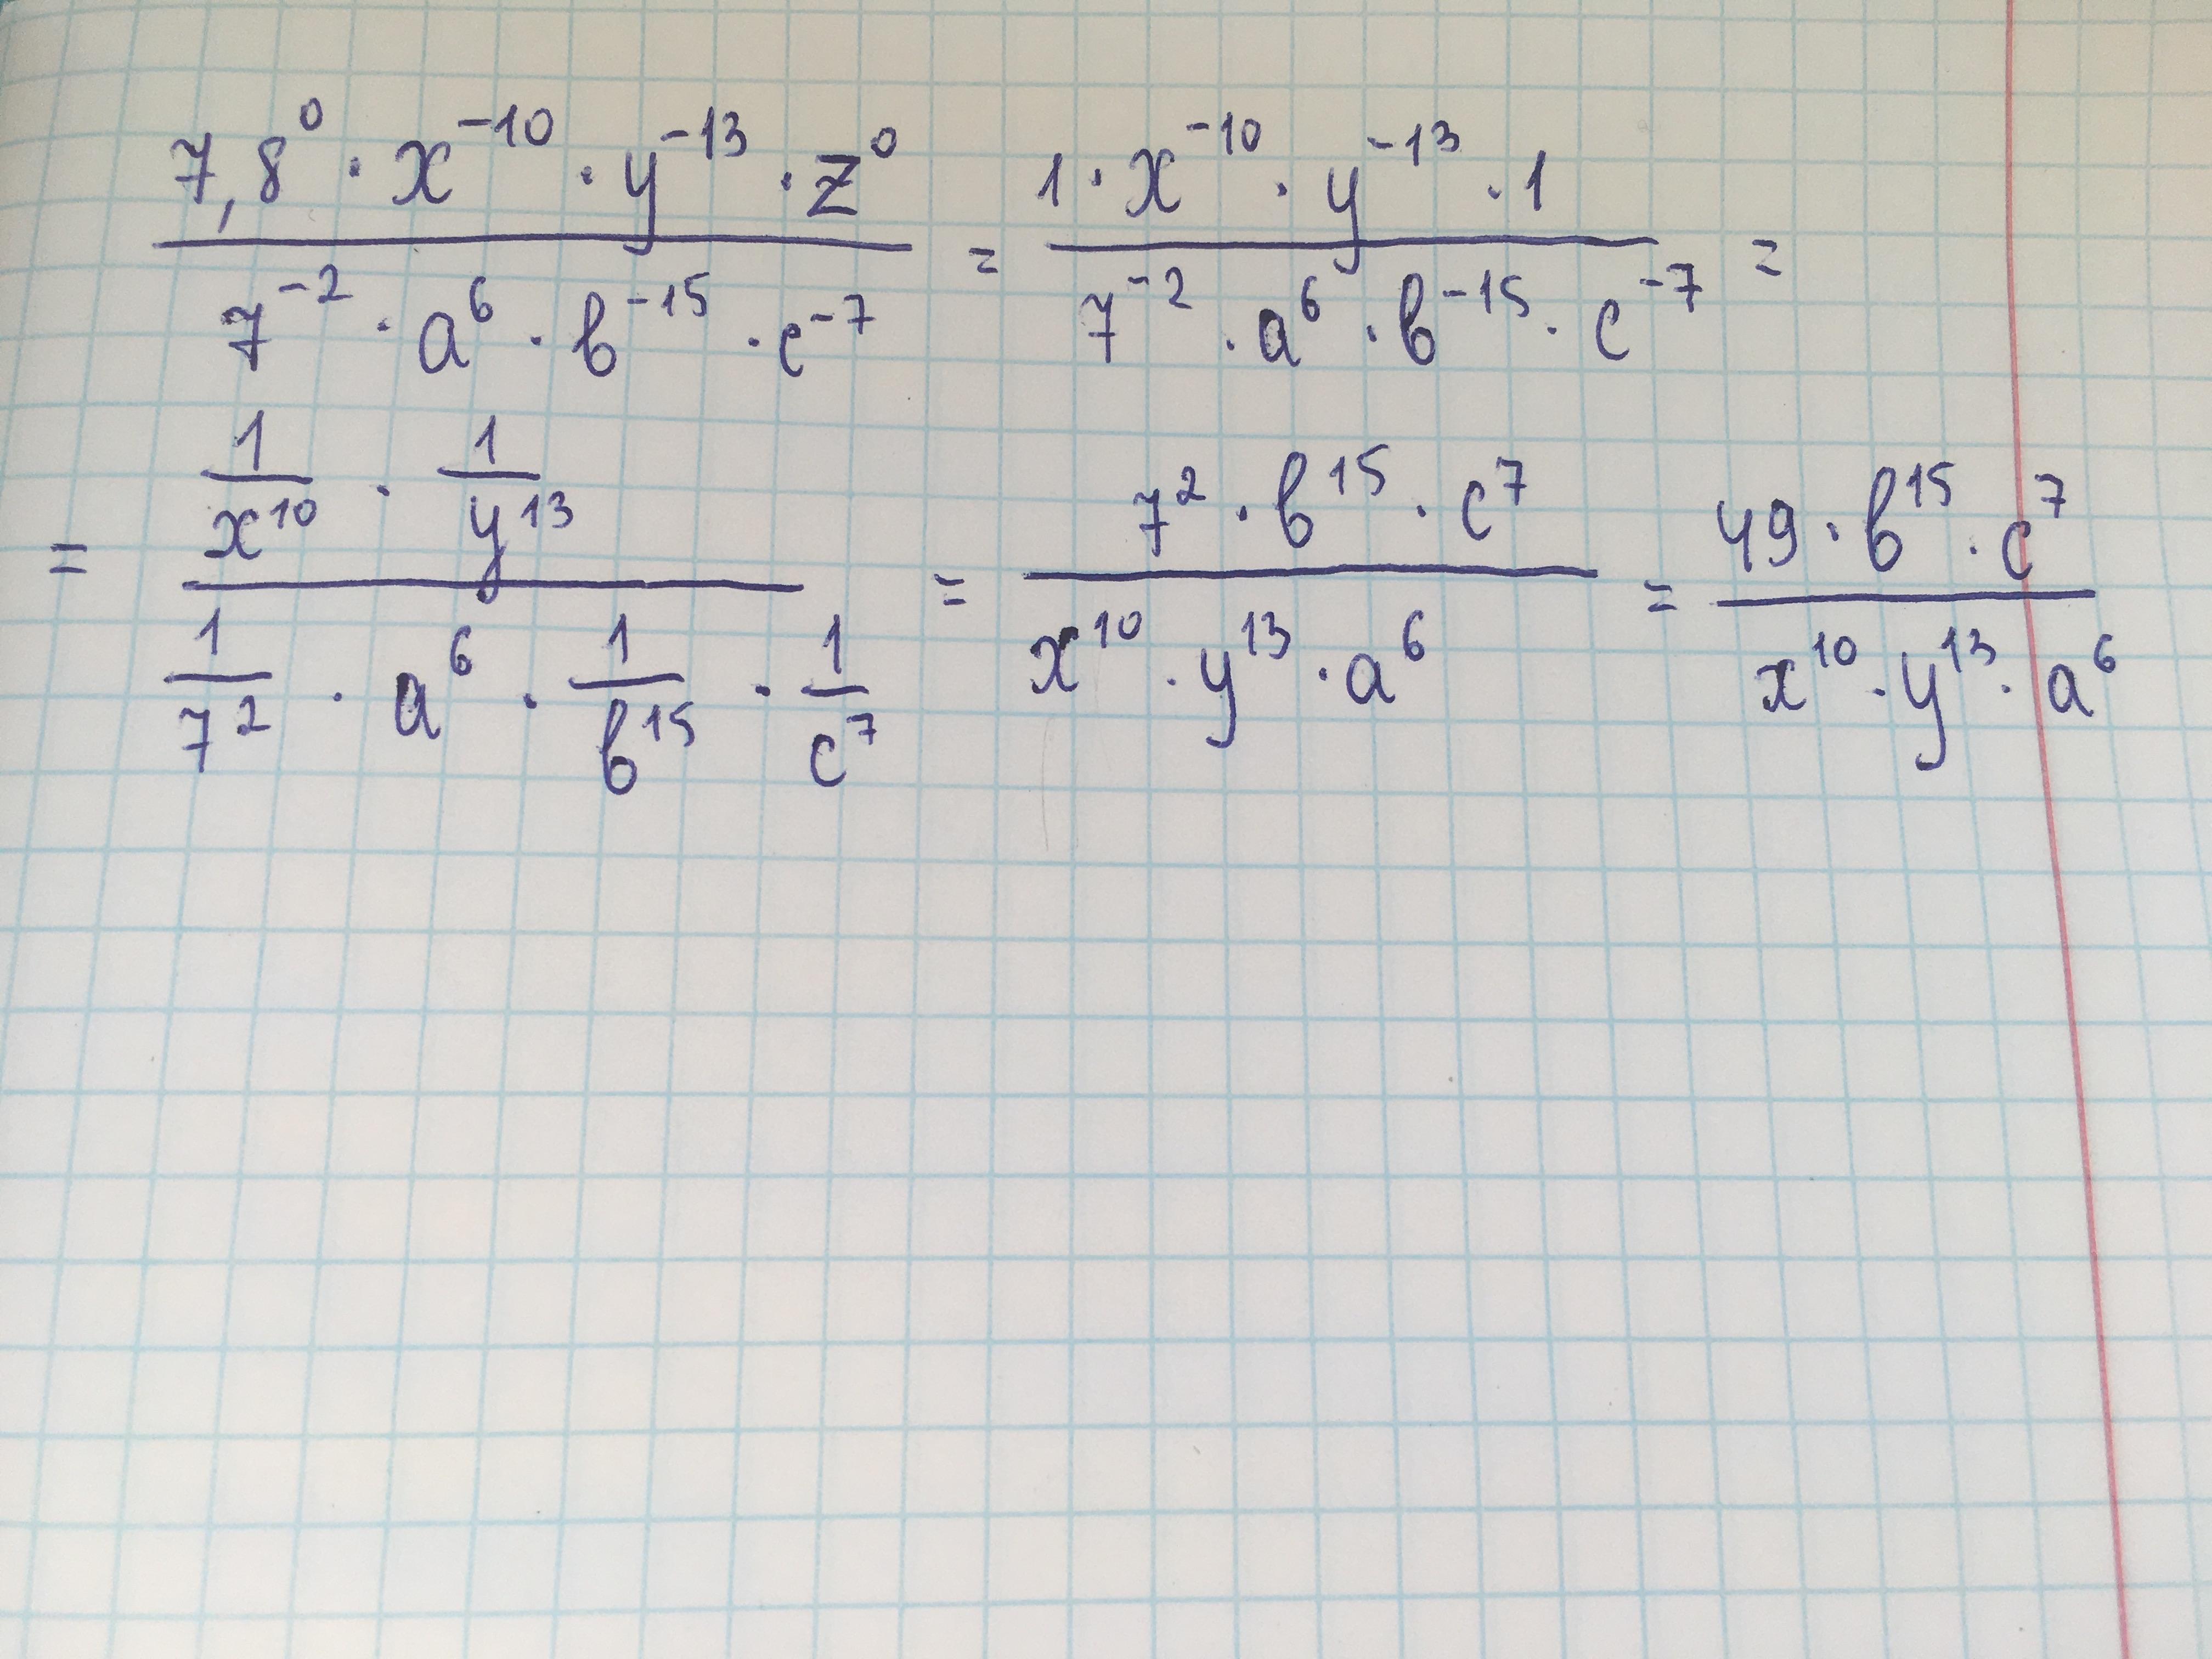 \frac{7,8^0 · x^{-10} · y^{-13} · z^0}{7^{-2} · a^6 · b^{-15} · c^{-7}} = \frac{1 · x^{-10} · y^{-13} · 1}{7^{-2} · a^6 · b^{-15} · c^{-7}} =
= \frac{\frac{1}{x^{10}} · \frac{1}{y^{13}}}{\frac{1}{7^2} · a^6 · \frac{1}{b^{15}} · \frac{1}{c^7}} = \frac{7^2 · b^{15} · c^7}{x^{10} · y^{13} · a^6} = \frac{49 · b^{15} · c^7}{x^{10} · y^{13} · a^6}